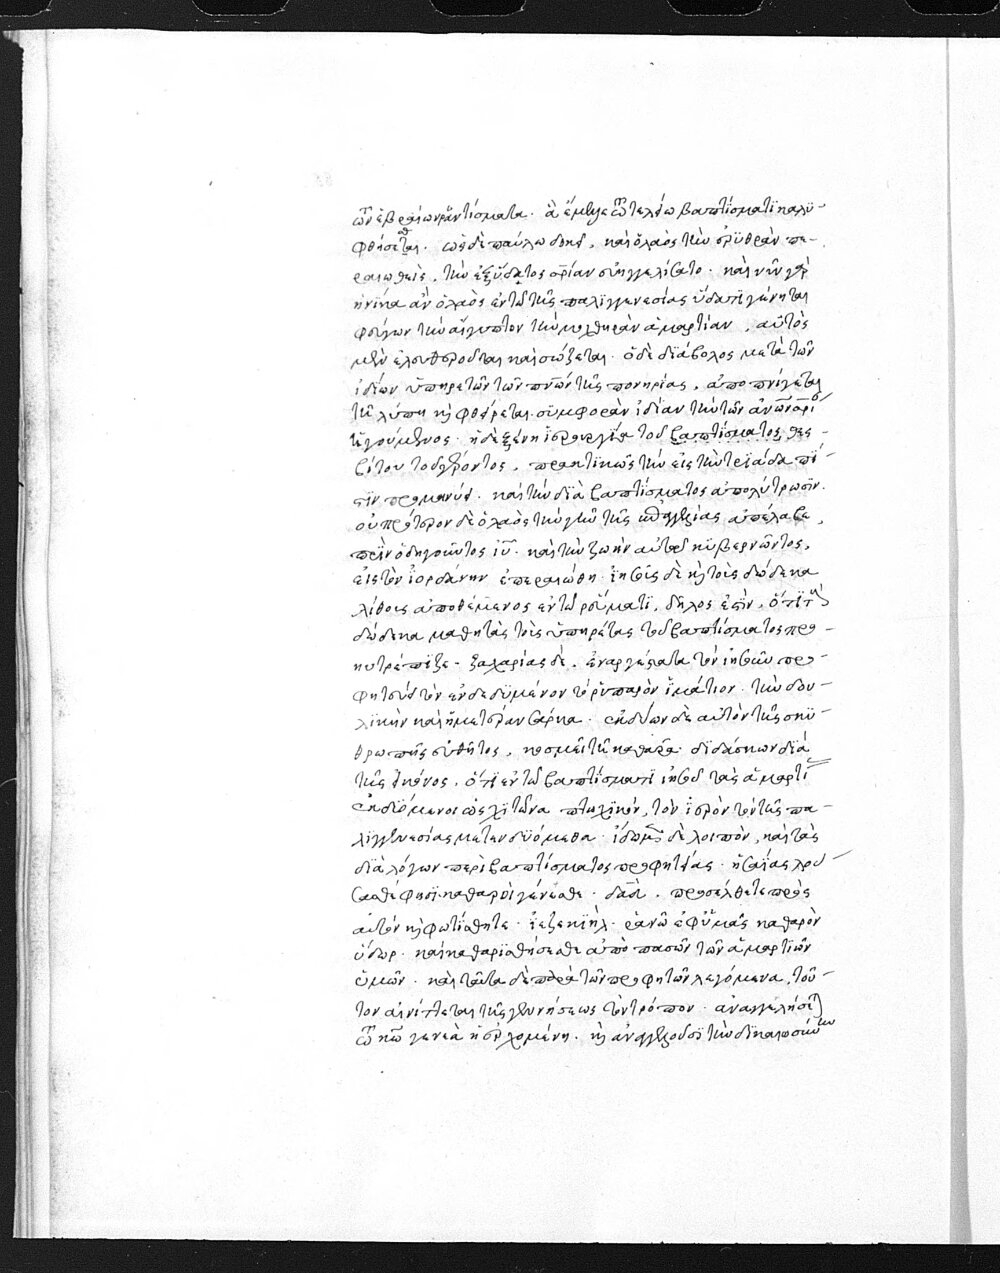 τῶν ἑβραίων ῥαντίσματα. ἃ ἔμελλε τῶ τελείω βαπτίσματι καλυ-
φθήσεσθαι. ὡς δὲ παύλω δοκεῖ, καὶ ὁ λαὸς τὴν ἐρυθρὰν πε-
ραιωθεὶς, τὴν ἐξ ὕδατος σωτηρίαν εὐηγγελίσατο. καὶ νῦν γὰρ
ἡνίκα ἂν ὁ λαὸς ἐν τῶ τῆς παλιγγενεσίας ὕδατι γένηται
φεύγων τὴν αἴγυπτον τὴν μοχθηρὰν ἁμαρτίαν, αὐτὸς
μὲν ἐλευθεροῦται καὶ σώζεται. ὁ δὲ διάβολος μετὰ τῶν
ἰδίων ὑπηρετῶν τῶν πνων τῆς πονηρίας, ἀποπνίγεται
τῆ λύπη καὶ φθείρεται. συμφορὰν ἰδίαν τὴν τῶν ἀνων σωτηρί
ἡγούμενος. ἡ δὲ ξένη ἱερουργία τοῦ βαπτίσματος θεσ-
βίτου τοῦ ζέοντος, πρακτικῶς τὴν εἰς τὴν τριάδα πί-
στιν προμηνύει. καὶ τὴν διὰ βαπτίσματος ἀπολύτρωσιν.
οὐ πρότερον δὲ ὁ λαὸς τὴν γῆν τῆς ἐπαγγελίας ἀπέλαβε,
πρὶν ὁδηγοῦντος ιυ. καὶ τὴν ζωὴν αὐτοῦ κυβερνῶντος,
εἰς τὸν ἰορδάνην ἐπεραιώθη. ἰησοῦς δὲ καὶ τοὺς δώδεκα
λίθους ἀποθέμενος ἐν τῶ ῥεύματι, δῆλος ἐστὶν, ὅτι τοὺς
δώδεκα μαθητὰς τοὺς ὑπηρέτας τοῦ βαπτίσματος προ-
ηυτρέπιζε. ζαχαρίας δὲ, ἐναργέστατα τὸν ἰησοῦν προ-
φητεύει τὸν ἐνδεδυμένον τὸ ῥυπαρὸν ἱμάτιον. τὴν δου-
λικὴν καὶ ἡμετέραν σάρκα. ἐκδύων δὲ αὐτὸν τῆς σκυ-
θρωπῆς ἐσθῆτος, κοσμεῖ τῆ καθαρᾶ. διδάσκων διὰ
τῆς εἰκόνος, ὅτι ἐν τῶ βαπτίσματι ἰησοῦ τὰς ἁμαρτί
ἐκδυόμενοι ὡς χιτῶνα πτωχικόν, τὸν ἱερὸν τὸν τῆς πα-
λιγγενεσίας μετενδυόμεθα. ἴδωμεν δὲ λοιπὸν, καὶ τὰς
διὰ λόγων περὶ βαπτίσματος προφητείας. ἡσαΐας λού-
σασθέ φησι καθαροὶ γένεσθε. δαδ, προσέλθετε πρὸς
αὐτὸν καὶ φωτίσθητε. ἰεζεκιὴλ. ῥανῶ ἐφ' ὑμᾶς καθαρὸν
ὕδωρ. καὶ καθαρισθήσεσθε ἀπὸ πασῶν τῶν ἁμαρτιῶν
ὑμῶν. καὶ ταῦτα δὲ παρὰ τῶν προφητῶν λεγόμενα, τοῦ-
τον αἰνίττεται τῆς γεννήσεως τὸν τρόπον. ἀναγγελήσεται
τῶ κω γενεὰ ἡ ἐρχομένη. καὶ ἀναγγελοῦσι τὴν δικαιοσύνην